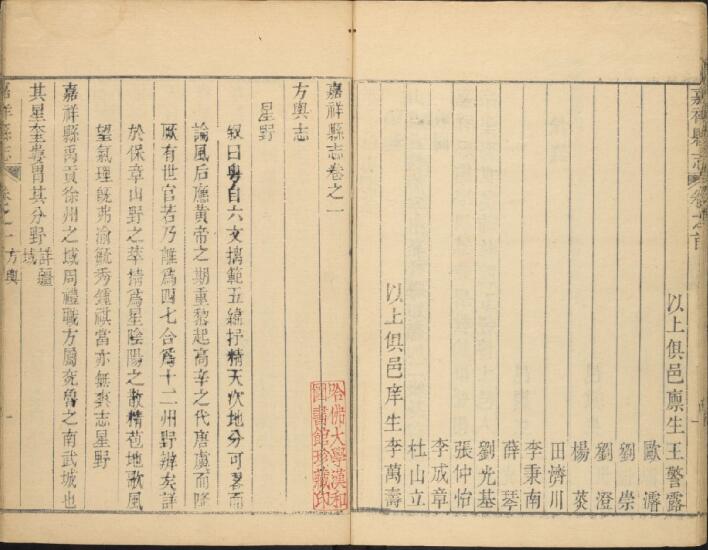 嘉祥縣志 卷之首
以上俱邑廩生王警露
歐濬
劉崇
劉澄
楊葵
田濟川
李秉南
薛琴
劉光基
張仲怡
李成章
杜山立
以上俱邑庠生李萬壽
嘉祥縣志卷之一
方輿志
星野
敘曰粵自六文摛範五緯抒精天次地分可畧而
論風后應黃帝之期重黎起高辛之代唐虞而降
厥有世官若乃離爲四七合爲十二州野辨矣詳
於保章山野之萃精爲星陰陽之散精苞地歌風
望氣理旣弗渝毓秀鍾祺當亦無爽志星野
嘉祥縣禹貢徐州之域周禮職方屬兗魯之南武城也
其星奎婁胃其分野詳疆域
嘉祥縣志 卷之一 方輿 一
哈佛大學漢和圖書館珍藏印